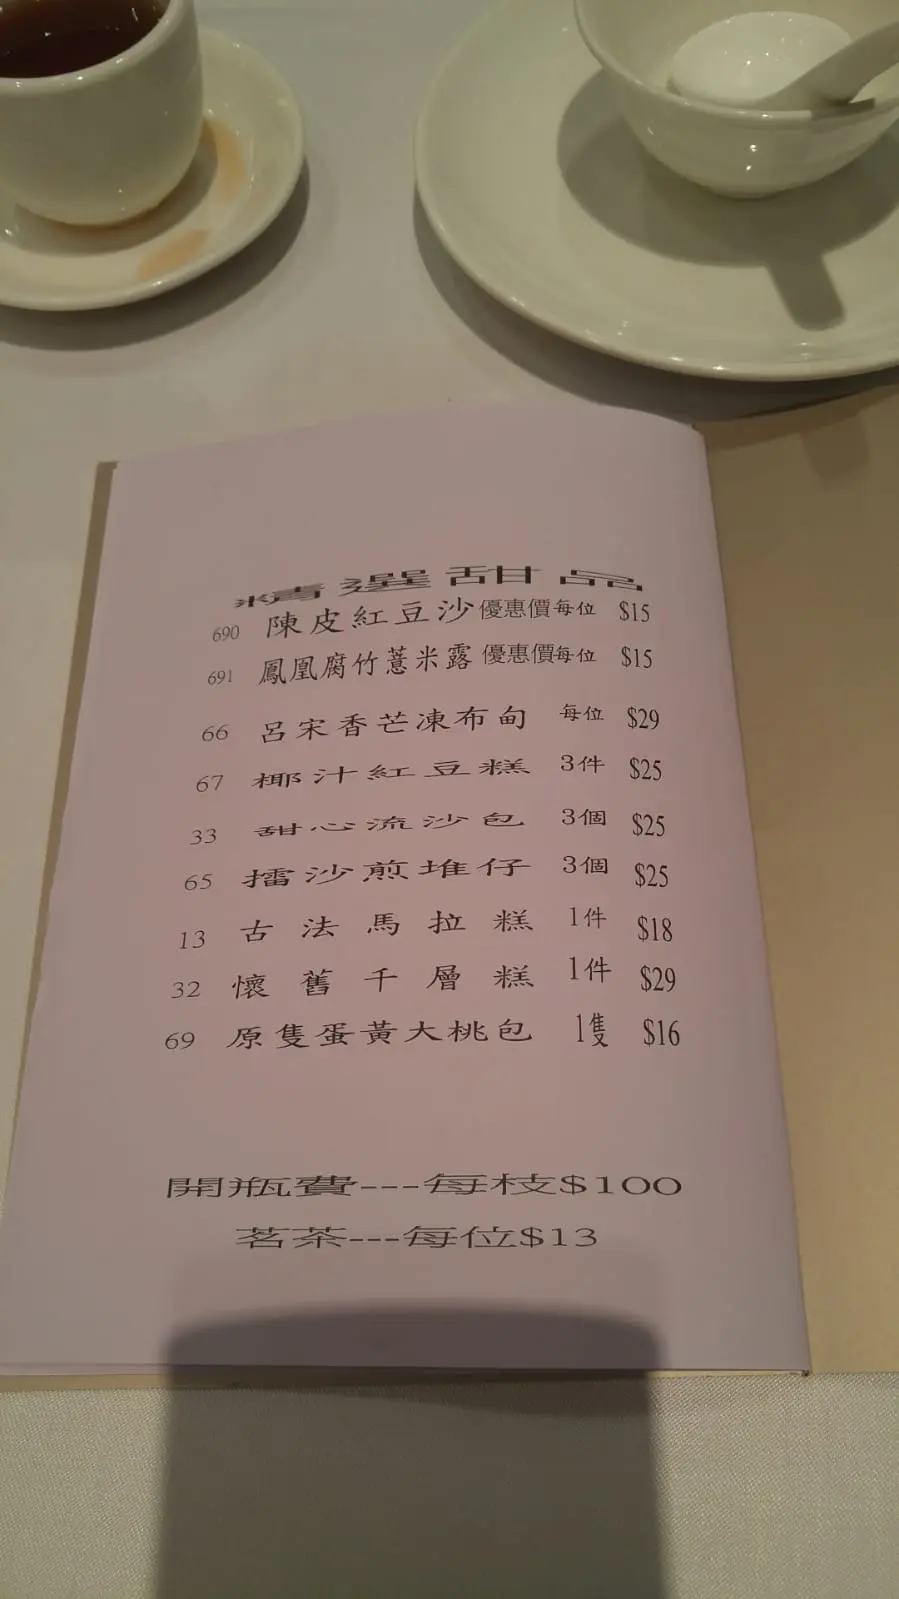 精選甜品
690 陳皮紅豆沙優惠價每位 $15
691 鳳凰腐竹薏米露 優惠價每位 $15
66 呂宋香芒凍布甸 每位 $29
67 椰汁紅豆糕 3件 $25
33 甜心流沙包 3個 $25
65 擂沙煎堆仔 3個 $25
13 古法馬拉糕 1件 $18
32 懷舊千層糕 1件 $29
69 原隻蛋黃大桃包 1隻 $16
開瓶費---每枝$100
茗茶---每位$13